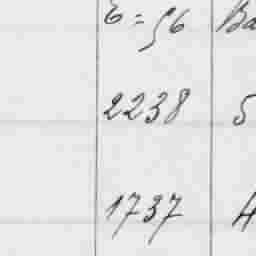 6=56 Ba
2238 5
1737 4